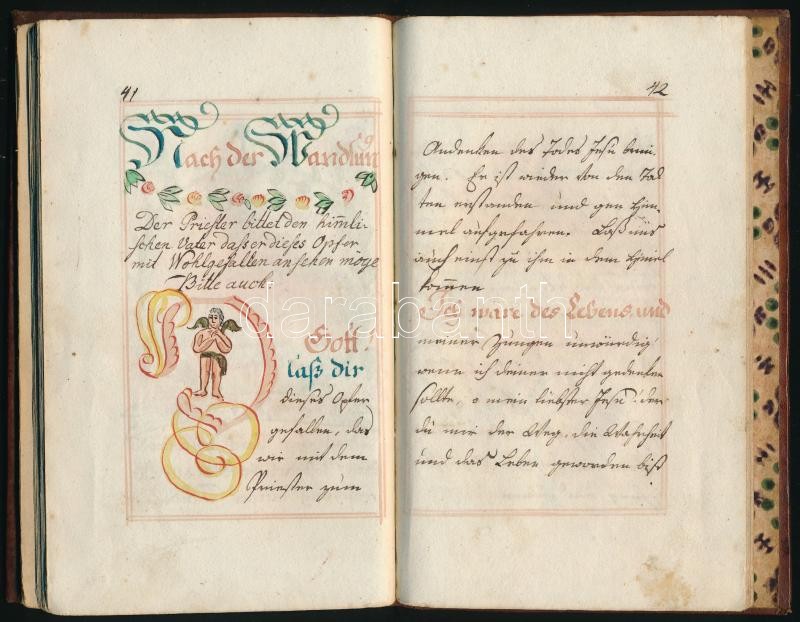 41
Nach der Wandlung
Der Priester bittet den himmli-
schen Vater dass er dieses Opfer
mit Wohlgefallen ansehen möge
Bitte auch
O Gott!
laß dir
dieses Opfer
gefallen, das
wir mit dem
Priester zum
42
Andenken des Todes Jesu brin-
gen. Er ist wieder von den Tod-
ten erstanden und gen Him-
mel aufgefahren. Laß uns
auch einst zu ihm in dem Himel
kommen
Ich ware des Lebens, und
meiner Zungen unwürdig
wenn ich deiner nicht gedenken
sollte, o mein liebster Jesu! der
du mir der Weg, die Wahrheit
und das Leben geworden bist
darabanth.com